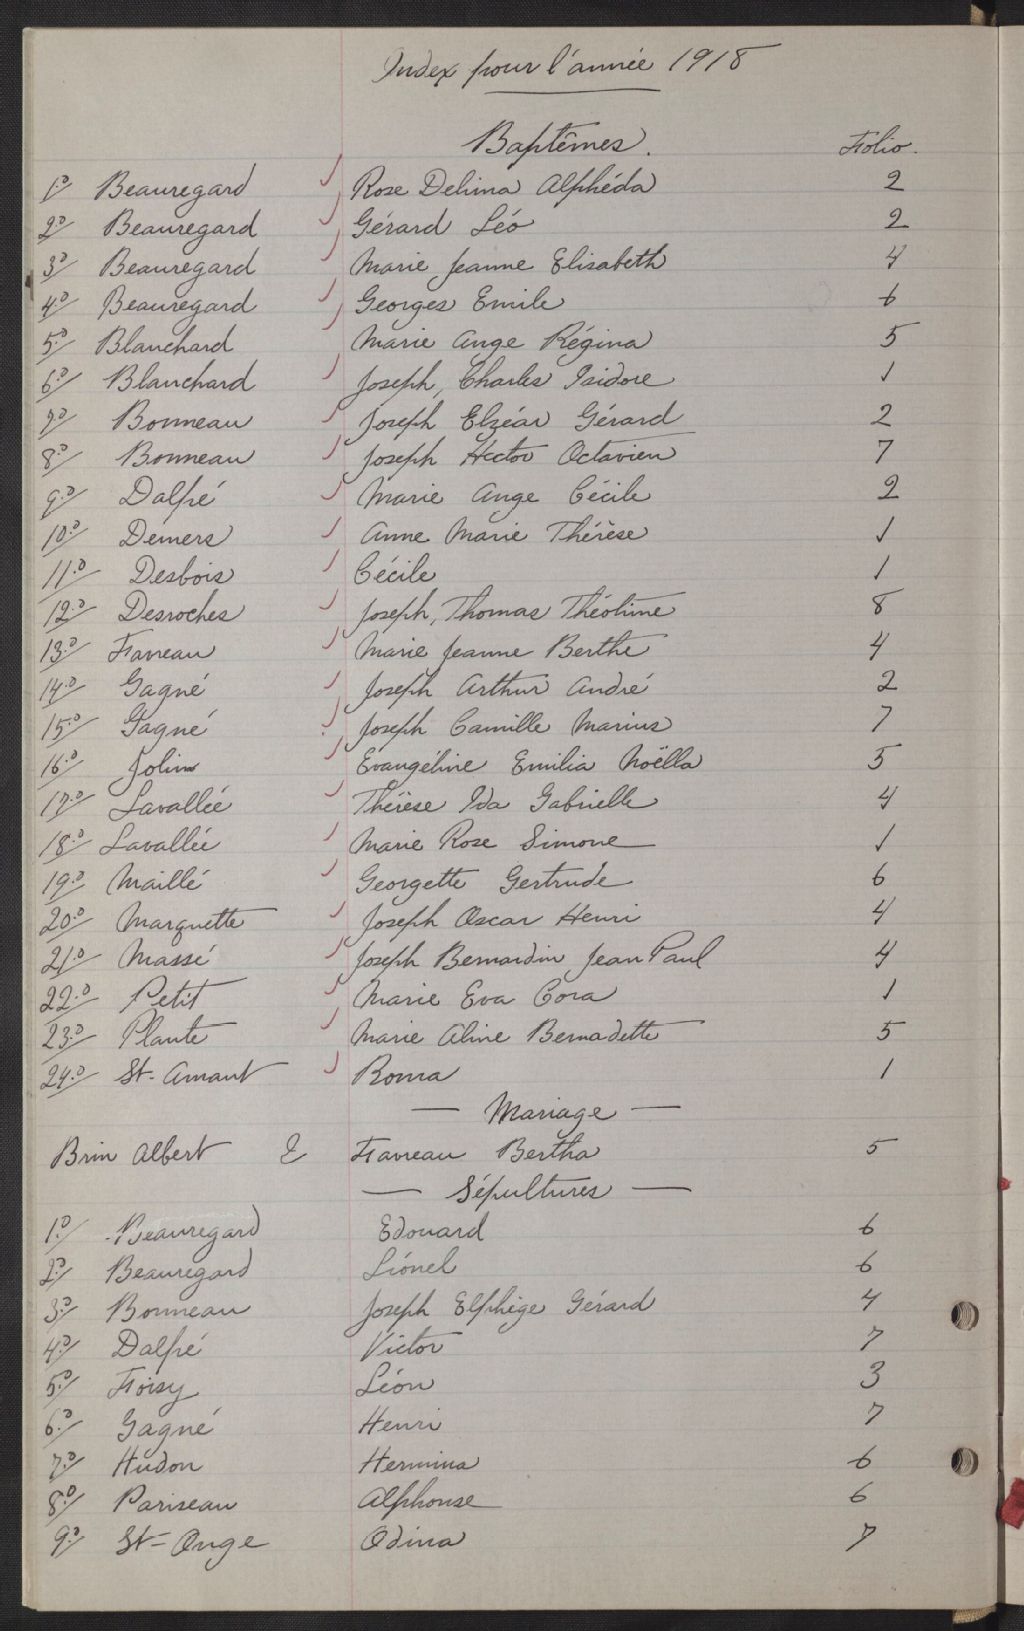 Index pour l'année 1918
Baptêmes. Folio.
1o/ Beauregard Rose Delima Alphéda 2
2o/ Beauregard Gérard Léo 2
3o/ Beauregard Marie Jeanne Elisabeth 4
4o/ Beauregard Georges Emile 6
5o/ Blanchard Marie Ange Régina 5
6o/ Blanchard Joseph, Charles Isidore 1
7o/ Bonneau Joseph Elzéar Gérard 2
8o/ Bonneau Joseph Hector Octavien 7
9o/ Dalpé Marie Ange Cécile 2
10o/ Demers Anne Marie Thérèse 1
11o/ Desbois Cécile 1
12o/ Desroches Joseph, Thomas Théotime 8
13o/ Favreau Marie Jeanne Berthe 4
14o/ Gagné Joseph Arthur André 2
15o/ Gagné Joseph Camille Marius 7
16o/ Jolin Evangéline Emilia Noëlla 5
17o/ Lavallée Thérèse Ida Gabrielle 4
18o/ Lavallée Marie Rose Simone 1
19o/ Maillé Georgette Gertrude 6
20o/ Marquette Joseph Oscar Henri 4
21o/ Massé Joseph Bernardin Jean Paul 4
22o/ Petit Marie Eva Cora 1
23o/ Plante Marie Aline Bernadette 5
24o/ St-Amant Roma 1
— Mariage —
Brin Albert & Favreau Bertha 5
— Sépultures —
1o/ Beauregard Edouard 6
2o/ Beauregard Lionel 6
3o/ Bonneau Joseph Elphège Gérard 4
4o/ Dalpé Victor 7
5o/ Foisy Léon 3
6o/ Gagné Henri 7
7o/ Hudon Hermina 6
8o/ Pariseau Alphonse 6
9o/ St-Onge Odina 7